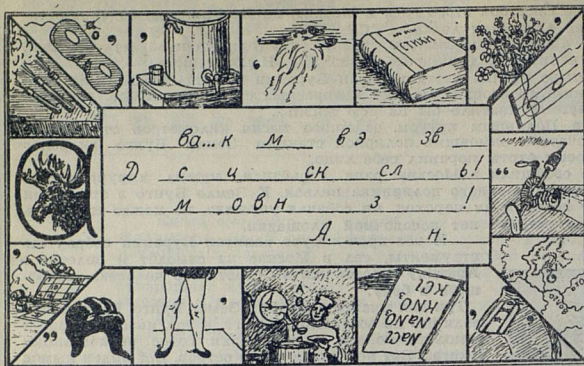 СТИХИ
ва...к м__ в э зв
Д с ц ск сл ь!
м о в н з !
А. н.
NaCl
NaNO3
KNO3
KCl